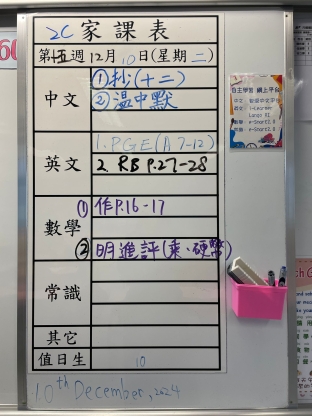 2C 家課表
第十五週 12月 10日(星期二)
中文
①抄(十二)
②温中默
英文
1. PGE(A 7-12)
2. RB P.27-28
數學
①作P.16-17
②明進評(乘、硬幣)
常識
其它
值日生 10
10th December, 2024
自主學習 網上平台